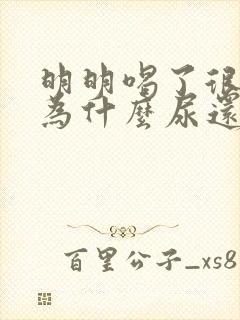 明明喝了很
為什麼尿還
百里公子_xs8